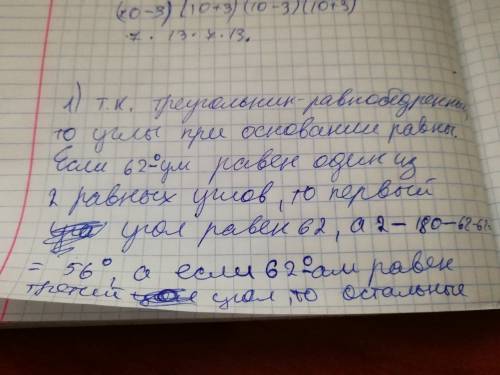 (10-3)(10+3)(10-3)(10+3)
7. 13. 7. 13.
1) т.к. треугольник-равнобедренный,
то углы при основании равны.
Если 62°ум равен один из
2 равных углов, то первый
угол равен 62, а 2-180-62-62=
= 56°, а если 62°ам равен
третий угол, то остальные